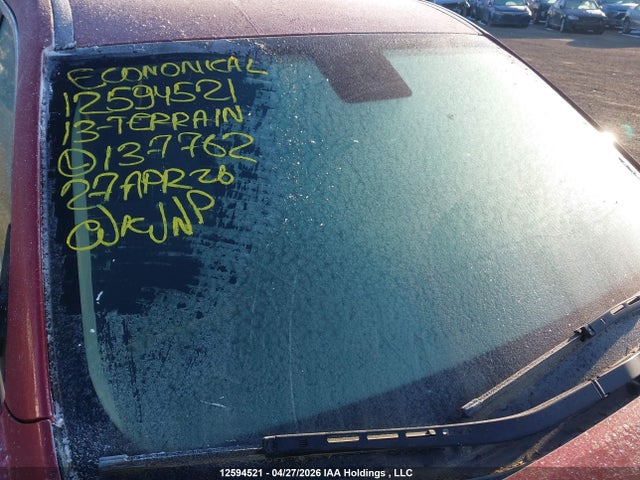 ECONONICAL
12594521
13-TERRAIN
137762
27APR26
12594521 - 04/27/2026 IAA Holdings , LLC